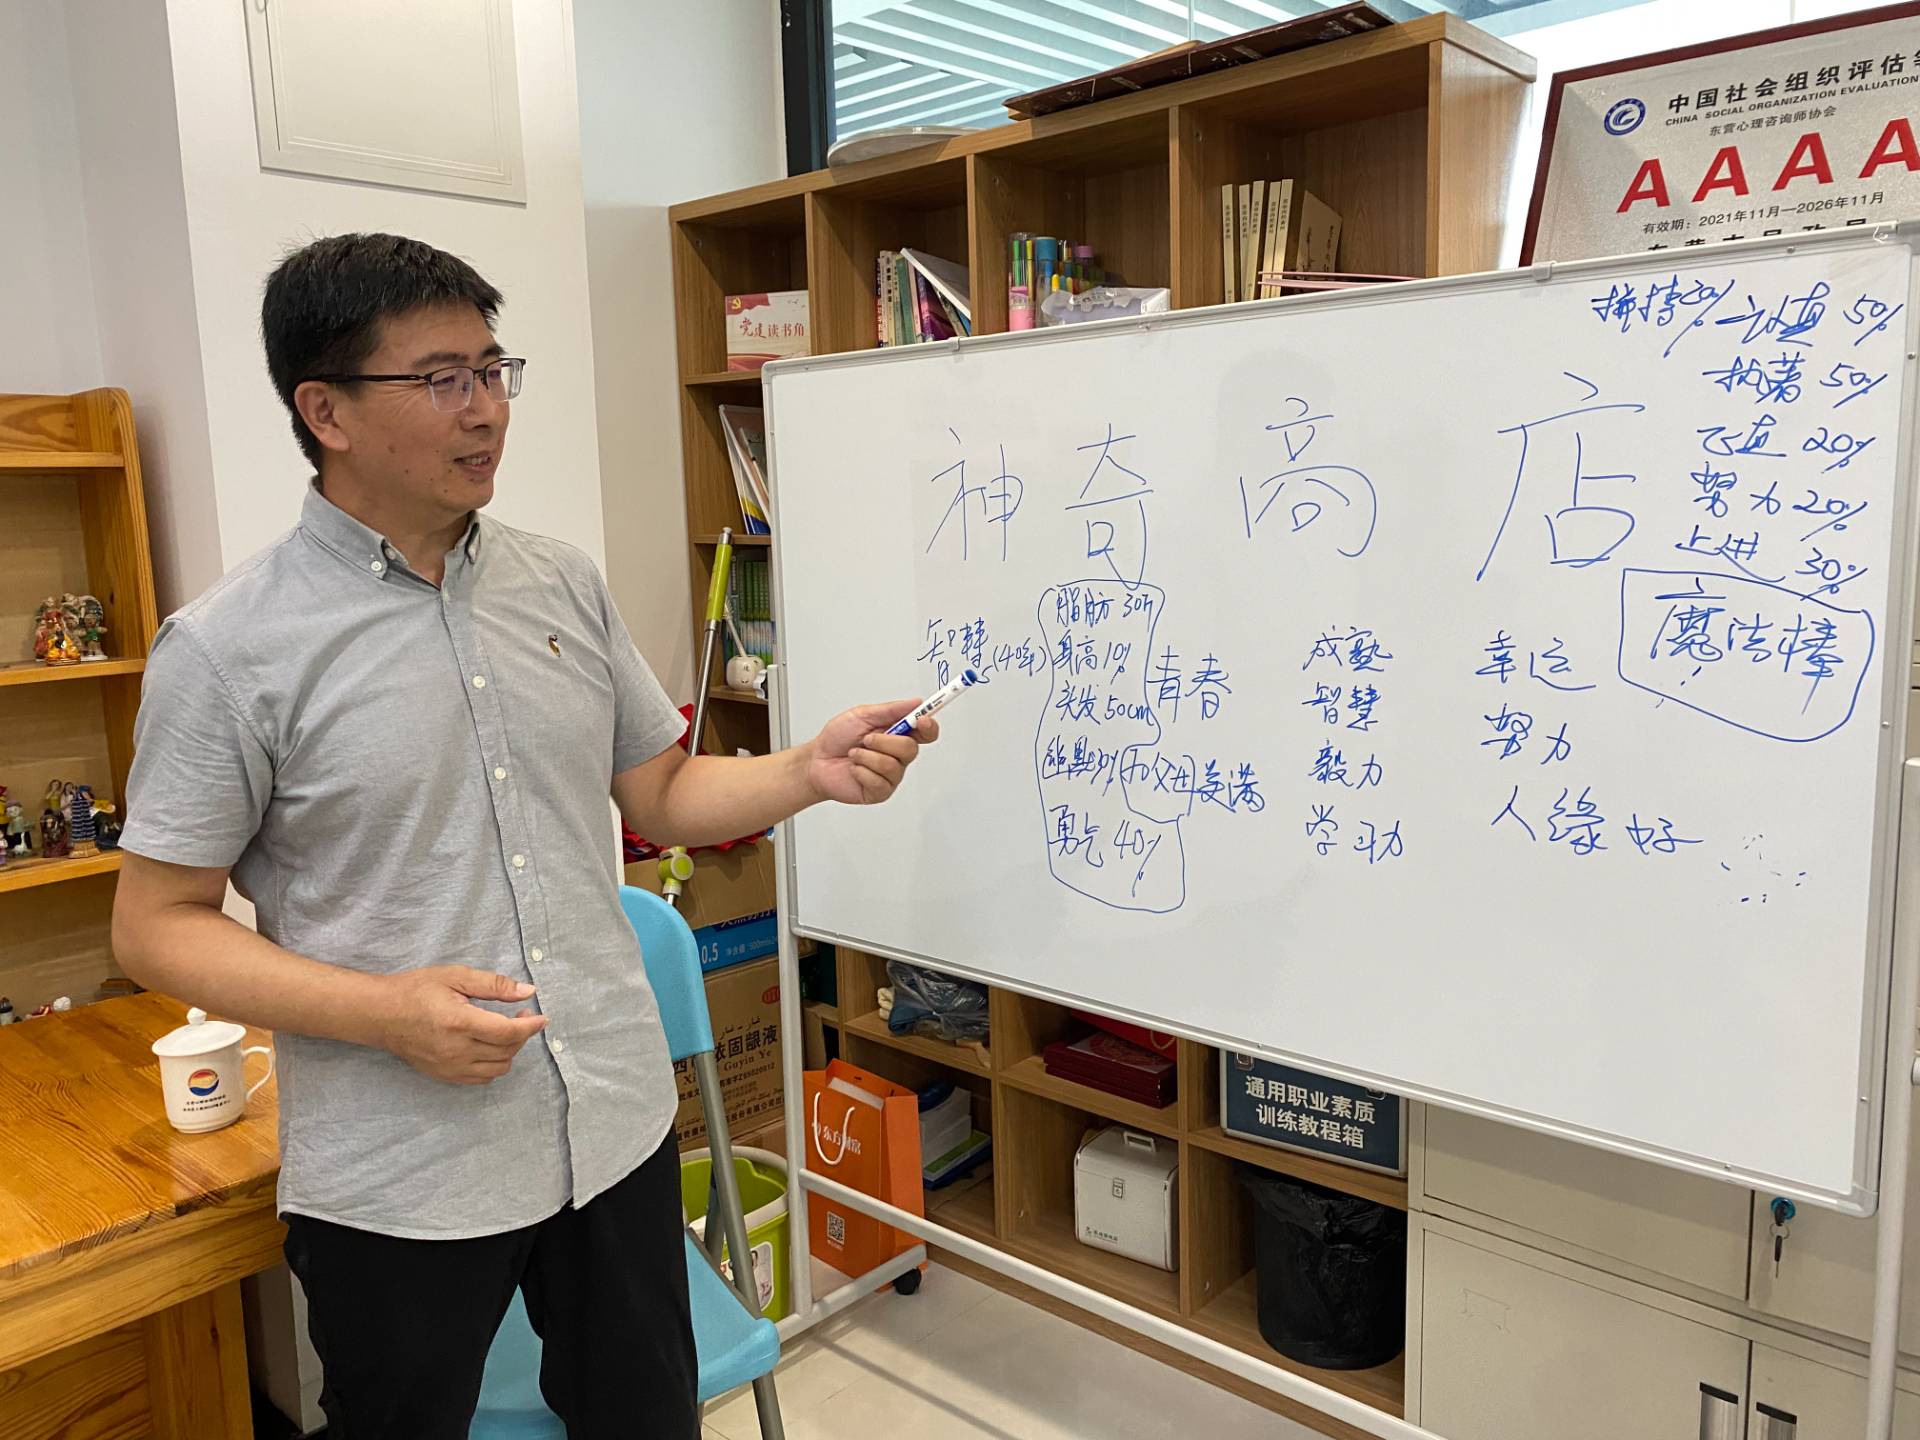 中国社会组织评估等
CHINA SOCIAL ORGANIZATION EVALUATION
东营心理咨询师协会
AAAA
有效期：2021年11月—2026年11月
党建读书角
拼搏20% 认真 50%
执著 50%
认真 20%
努力 20%
上进 30%
魔法棒
神奇商店
智慧(40年)
脂肪 30斤
身高 10%
头发 50cm
幽默
勇气 40%
青春
和父母
美满
成熟
智慧
毅力
学习力
幸运
努力
人缘好
0.5
净含量
固龈液
Guyin Ye
东方财富
通用职业素质
训练教程箱